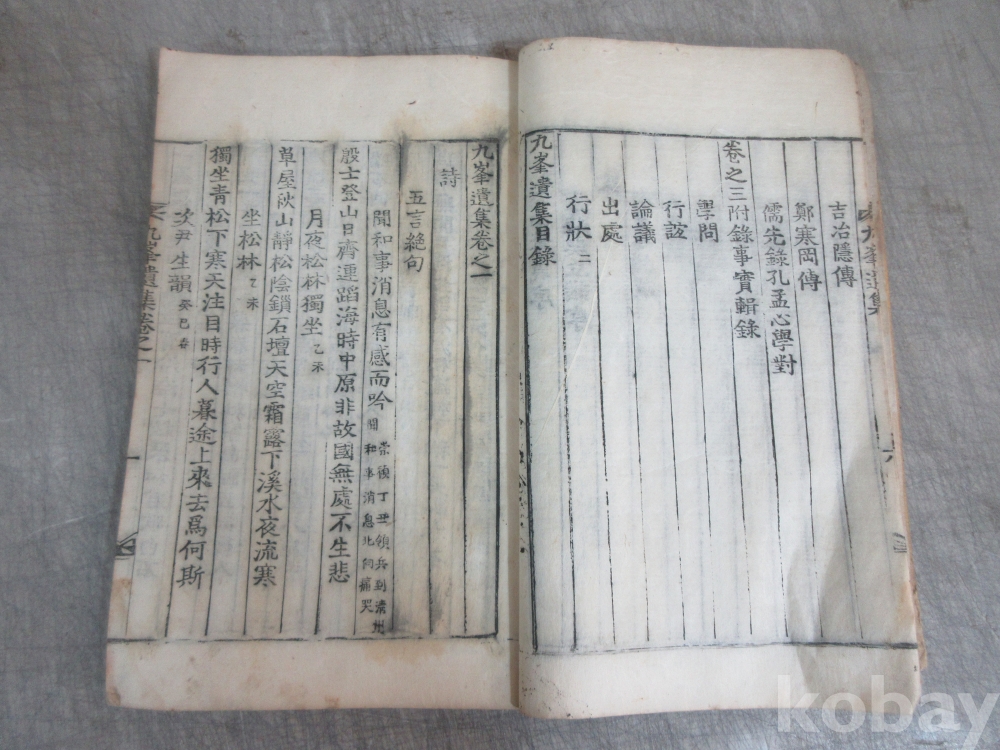 九峯遺集
吉冶隱傳
鄭寒岡傳
儒先錄孔孟心學對
卷之三附錄事實輯錄
學問
行誼
論議
出處
行狀二
九峯遺集目錄
九峯遺集卷之一
詩
五言絕句
聞和事消息有感而吟 崇德丁丑領兵到淸州
聞和事消息北向痛哭
殷士登山日齊連蹈海時中原非故國無處不生悲
月夜松林獨坐乙未
草屋秋山靜松陰鎖石壇天空霜露下溪水夜流寒
坐松林乙未
獨坐青松下寒天注目時行人暮途上來去爲何斯
次尹生韻癸巳春
九峯遺集卷之一
一
kobay